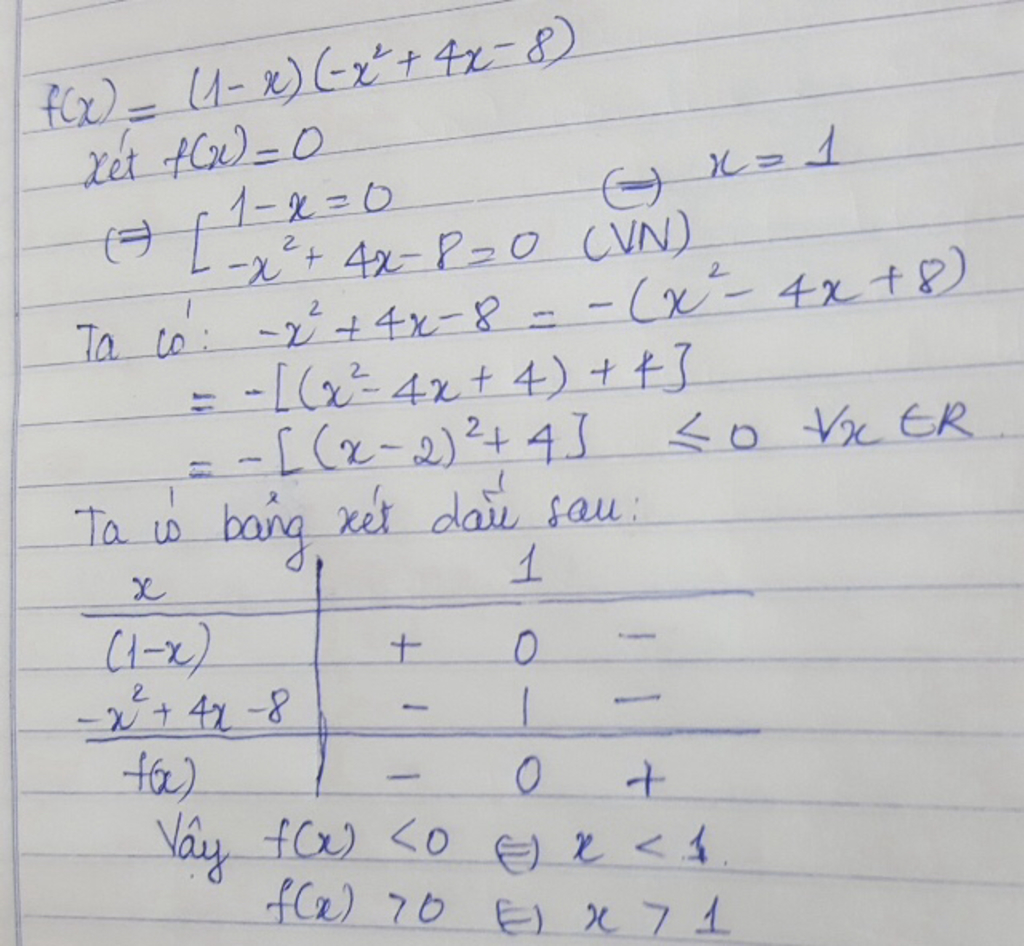 f(x) = (1-x)(-x² + 4x - 8)
xét f(x) = 0
⇔ [ 1-x = 0 ⇔ x = 1
-x² + 4x - 8 = 0 (VN)
Ta có: -x² + 4x - 8 = -(x² - 4x + 8)
= -[(x² - 4x + 4) + 4]
= -[(x-2)² + 4] ≤ 0 ∀x ∈ R
Ta có bảng xét dấu sau:
x | 1
(1-x) | + 0 -
-x² + 4x - 8 | - | -
f(x) | - 0 +
Vậy f(x) < 0 ⇔ x < 1.
f(x) > 0 ⇔ x > 1